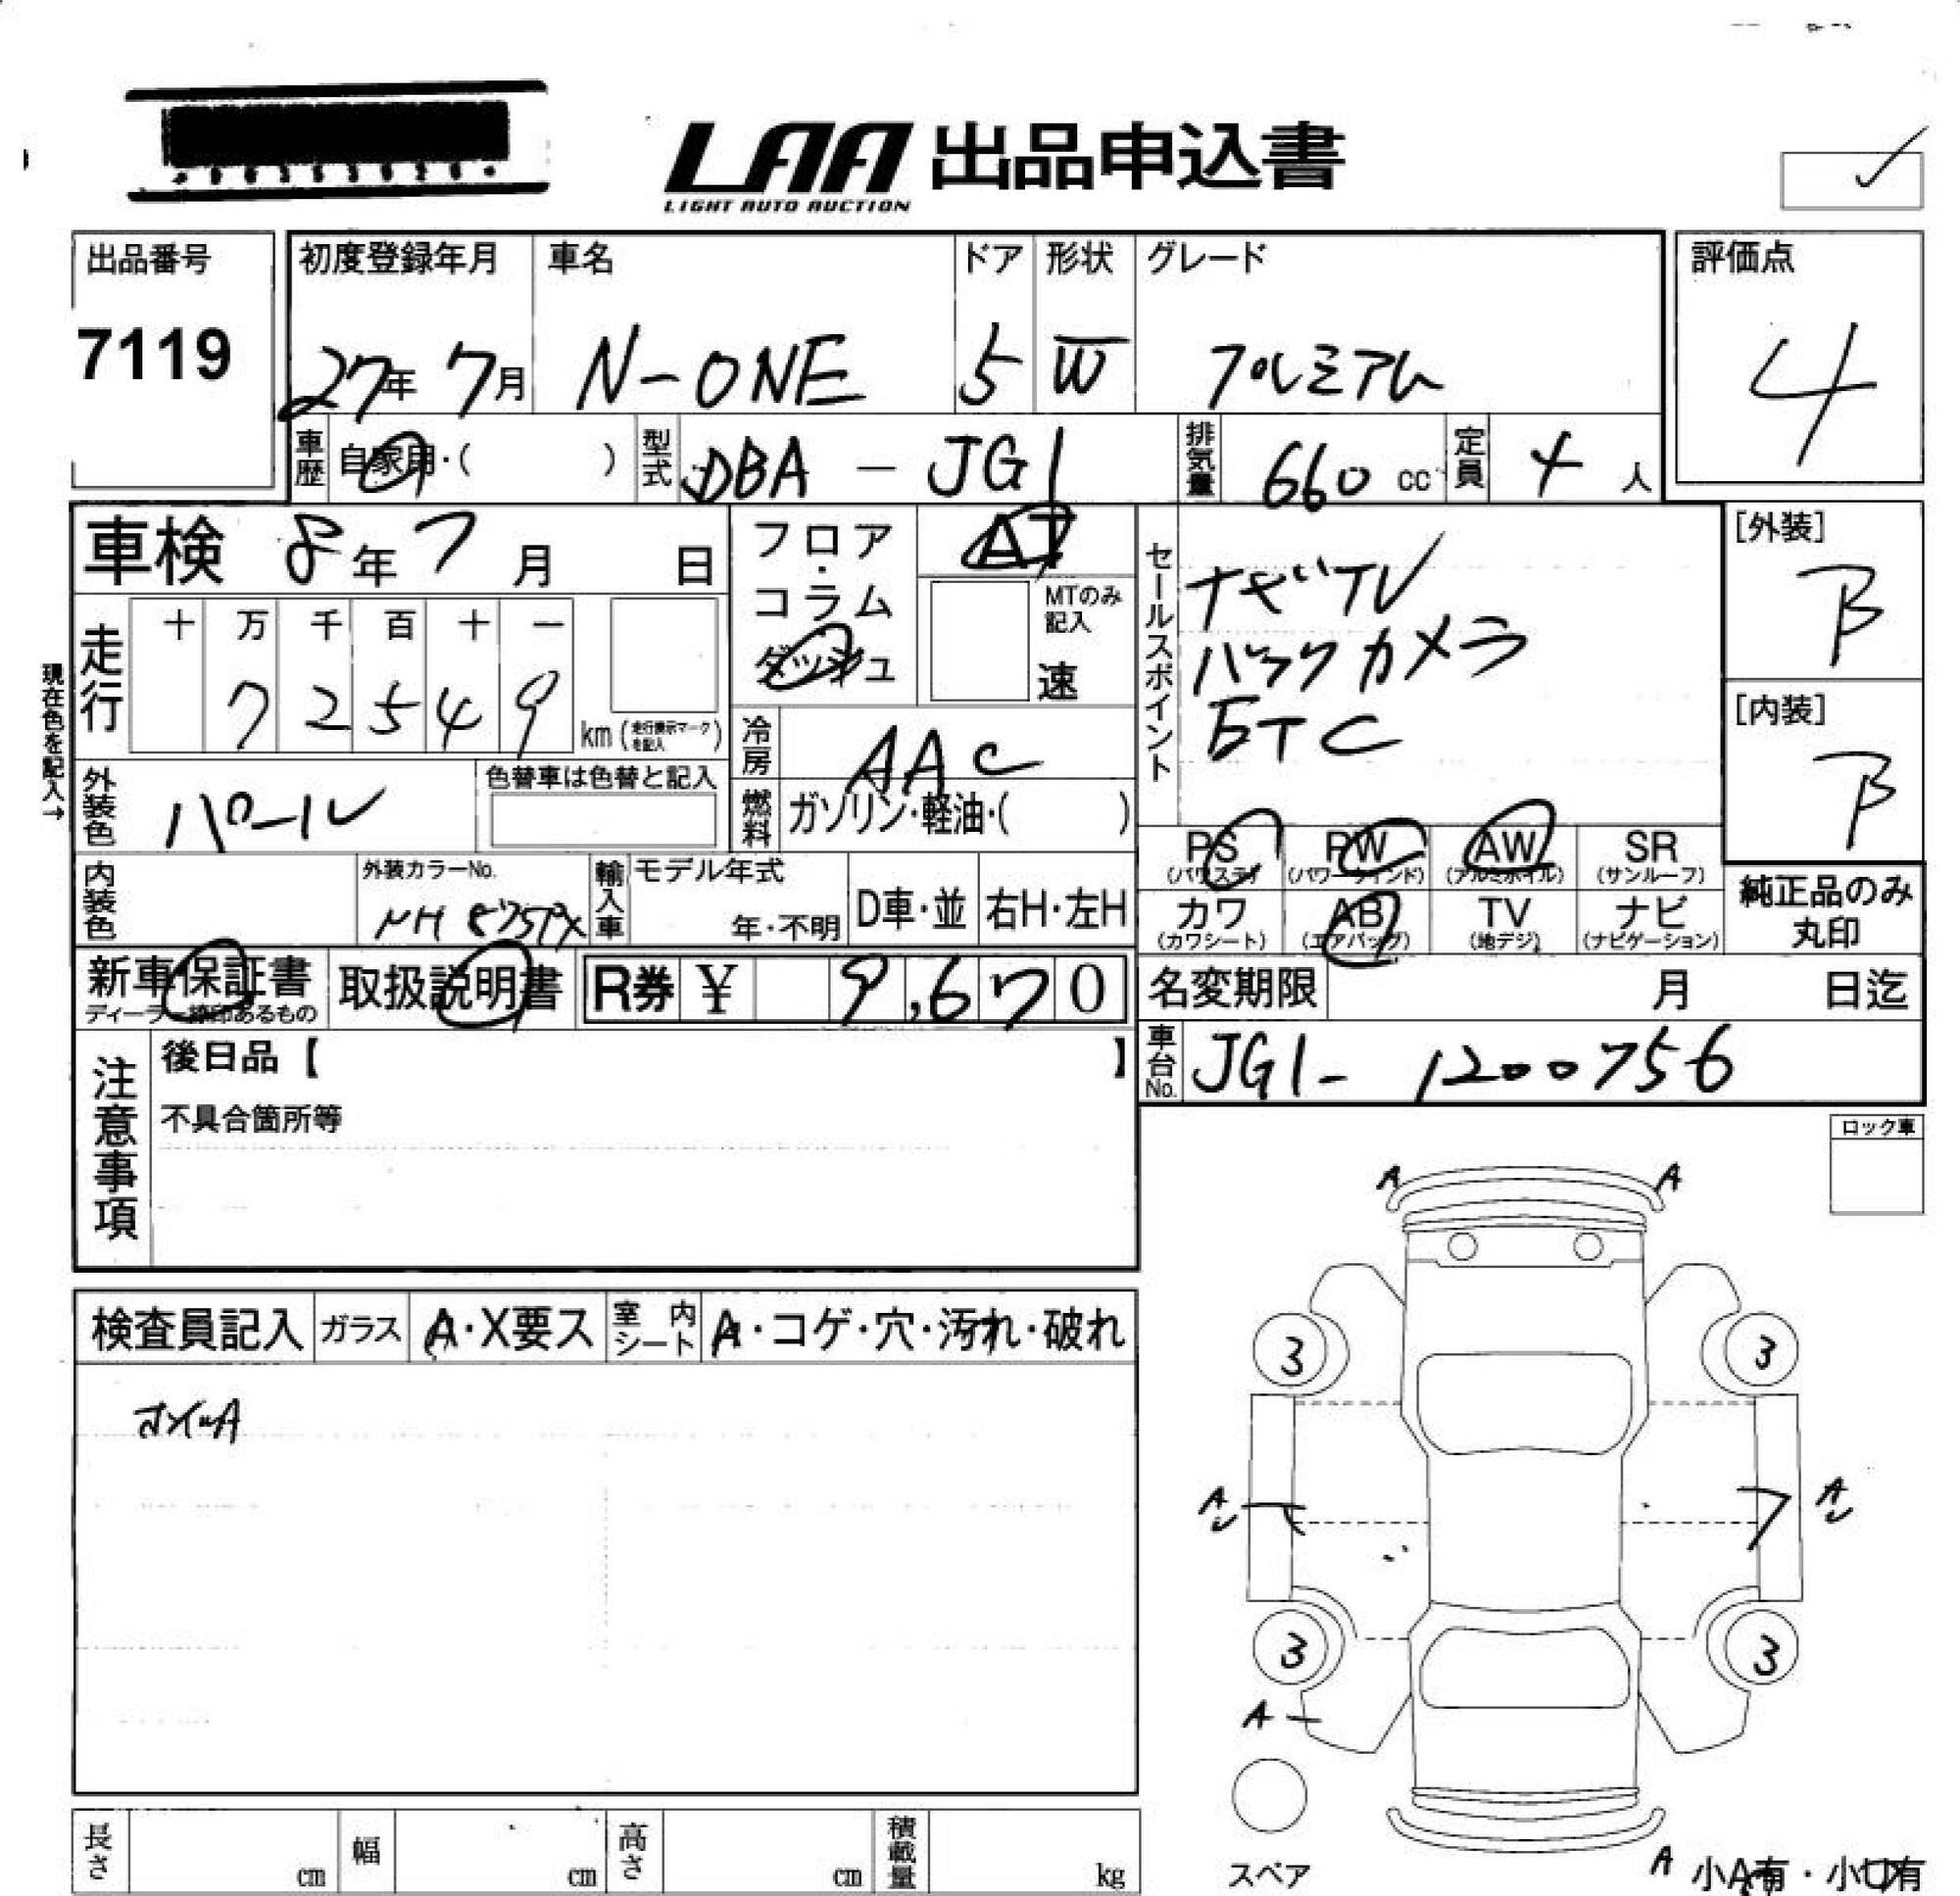 LAA 出品申込書
LIGHT AUTO AUCTION
出品番号
7119
初度登録年月
27年 7月
車名
N-ONE
ドア
5
形状
W
グレード
プレミアム
評価点
4
車歴
自家用・( )
型式
DBA - JG1
排気量
660 cc
定員
4 人
車検 8年 7月 日
フロア・コラム
ダッシュ
AT
MTのみ記入
速
セールスポイント
ナビTV
バックカメラ
ETC
[外装]
B
[内装]
B
現在色を記入→
走行
十 万 千 百 十 一
7 2 5 4 9
km (走行表示マークを記入)
冷房
AAC
外装色
パール
色替車は色替と記入
燃料
ガソリン・軽油・( )
PS
(パワステ)
PW
(パワーウインド)
AW
(アルミホイル)
SR
(サンルーフ)
カワ
(カワシート)
AB
(エアバック)
TV
(地デジ)
ナビ
(ナビゲーション)
純正品のみ
丸印
内装色
外装カラーNo.
輸入車
モデル年式
年・不明
D車・並
右H・左H
新車保証書
ディーラー捺印あるもの
取扱説明書
R券 ¥ 9,670
名変期限 月 日迄
車台No.
JG1- 1200756
注意事項
後日品【 】
不具合箇所等
ロック車
検査員記入
ガラス
A・X要ス
室内シート
A・コゲ・穴・汚れ・破れ
A A
3 3
A A
3 3
A
スペア
A 小A有・小U有
長さ cm
幅 cm
高さ cm
積載量 kg